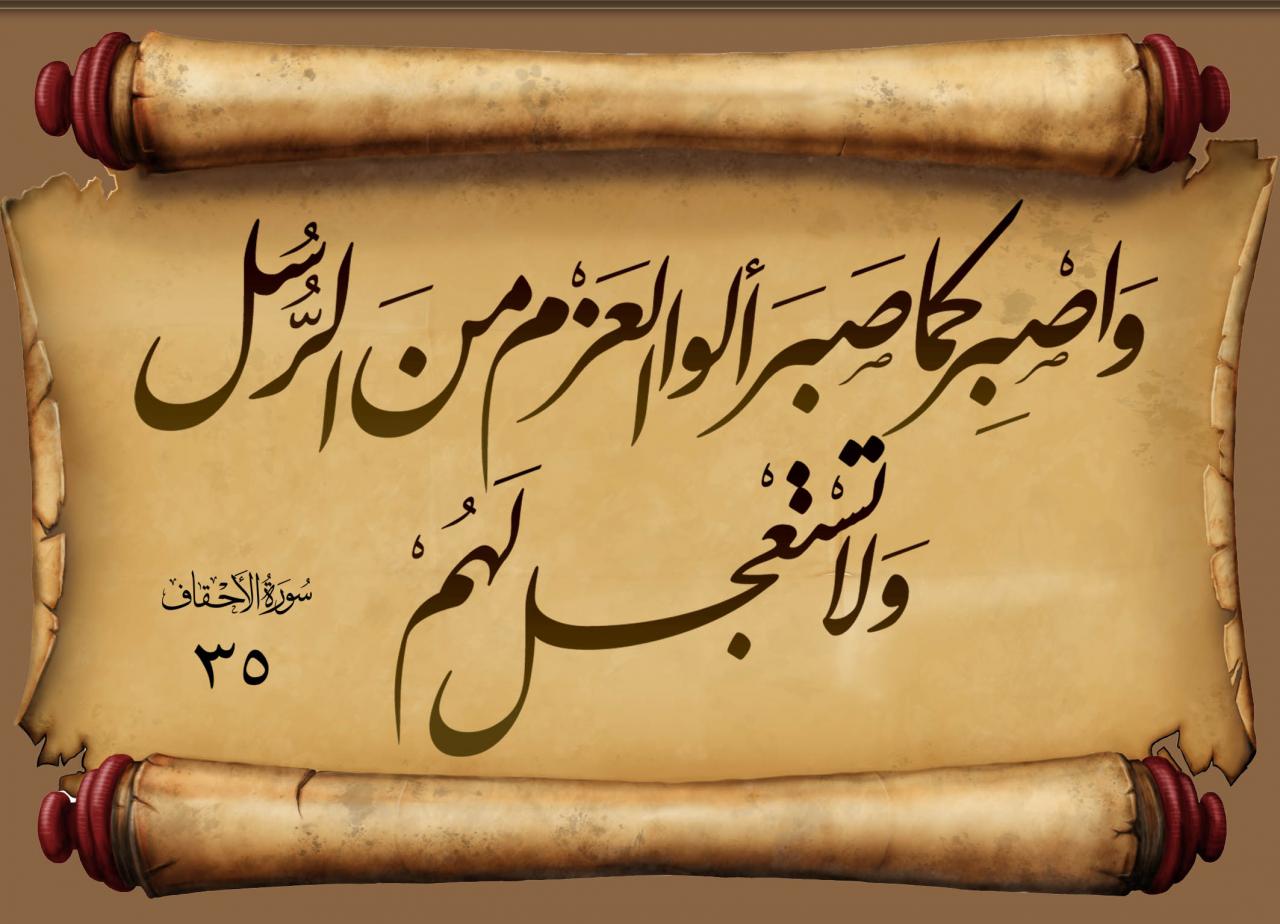 وَاصْبِرْ كَمَا صَبَرَ أُلُوا العَزْمِ مِنَ الرُّسُلِ
وَلَا تَسْتَعْجِل لَهُمْ
سُورَةُ الأَحْقَاف
٣٥